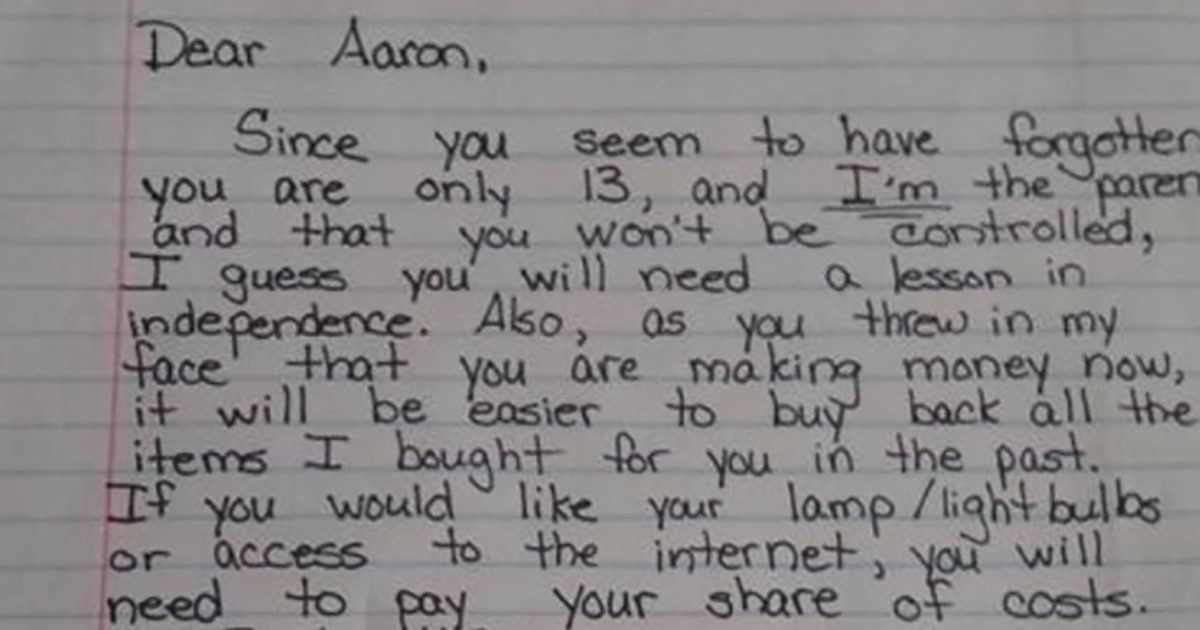 Dear Aaron,
Since you seem to have forgotten
you are only 13, and I'm the paren
and that you won't be controlled,
I guess you will need a lesson in
independence. Also, as you threw in my
face that you are making money now,
it will be easier to buy back all the
items I bought for you in the past.
If you would like your lamp/lightbulbs
or access to the internet, you will
need to pay your share of costs.